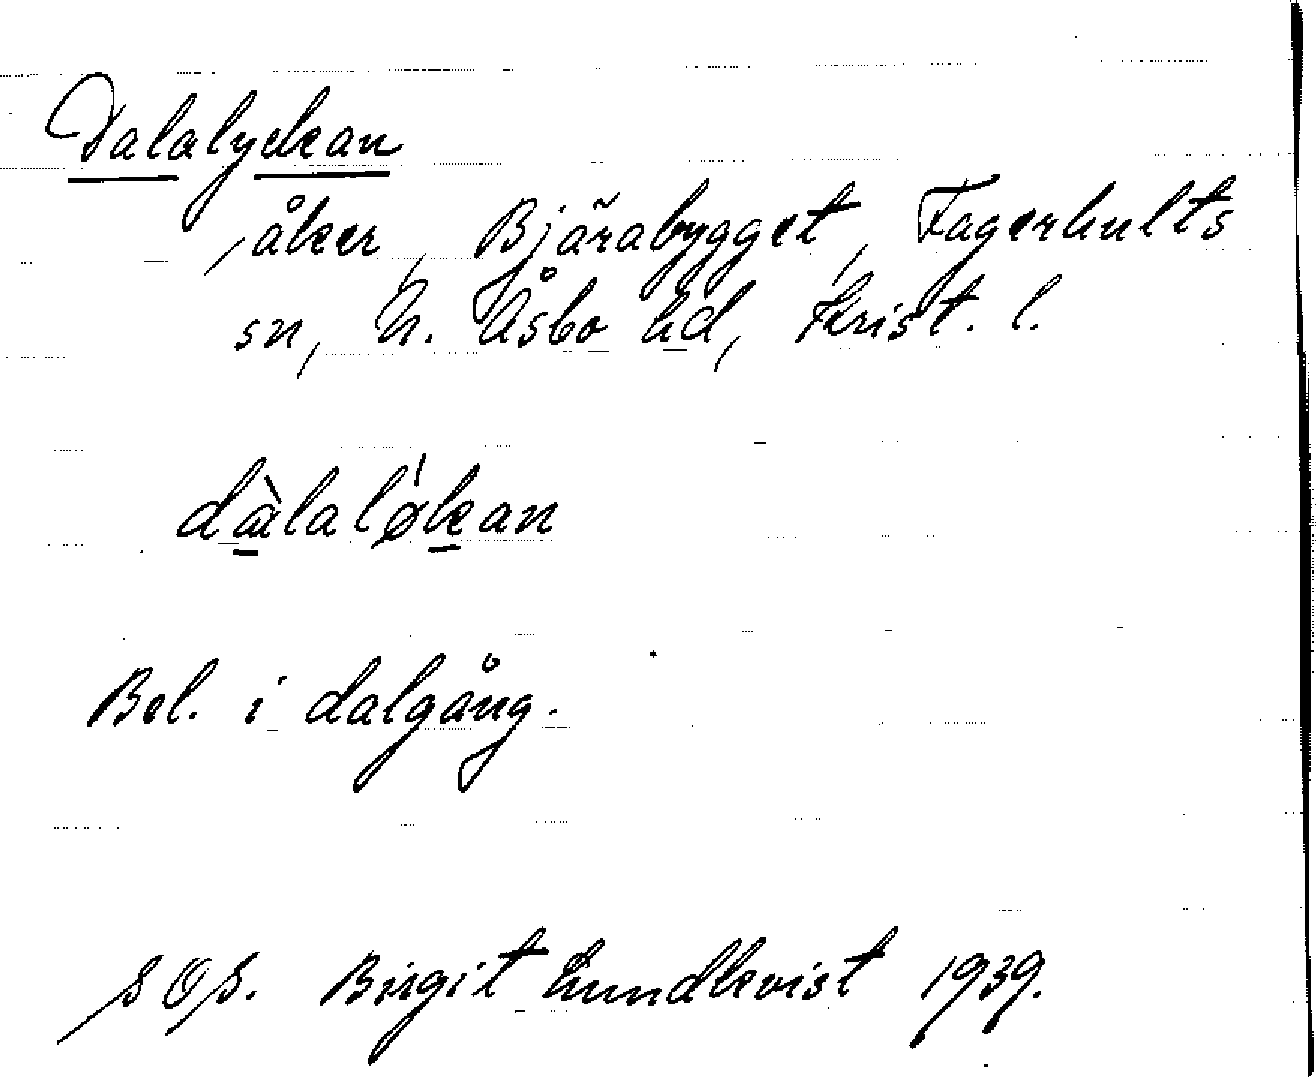 Dalalyckan
, åker, Bjärabygget, Fagerhults
sn, N. Åsbo hd, Krist. l.
dàlaløkan
Bel. i dalgång.
SOS. Birgit Lundkvist 1939.